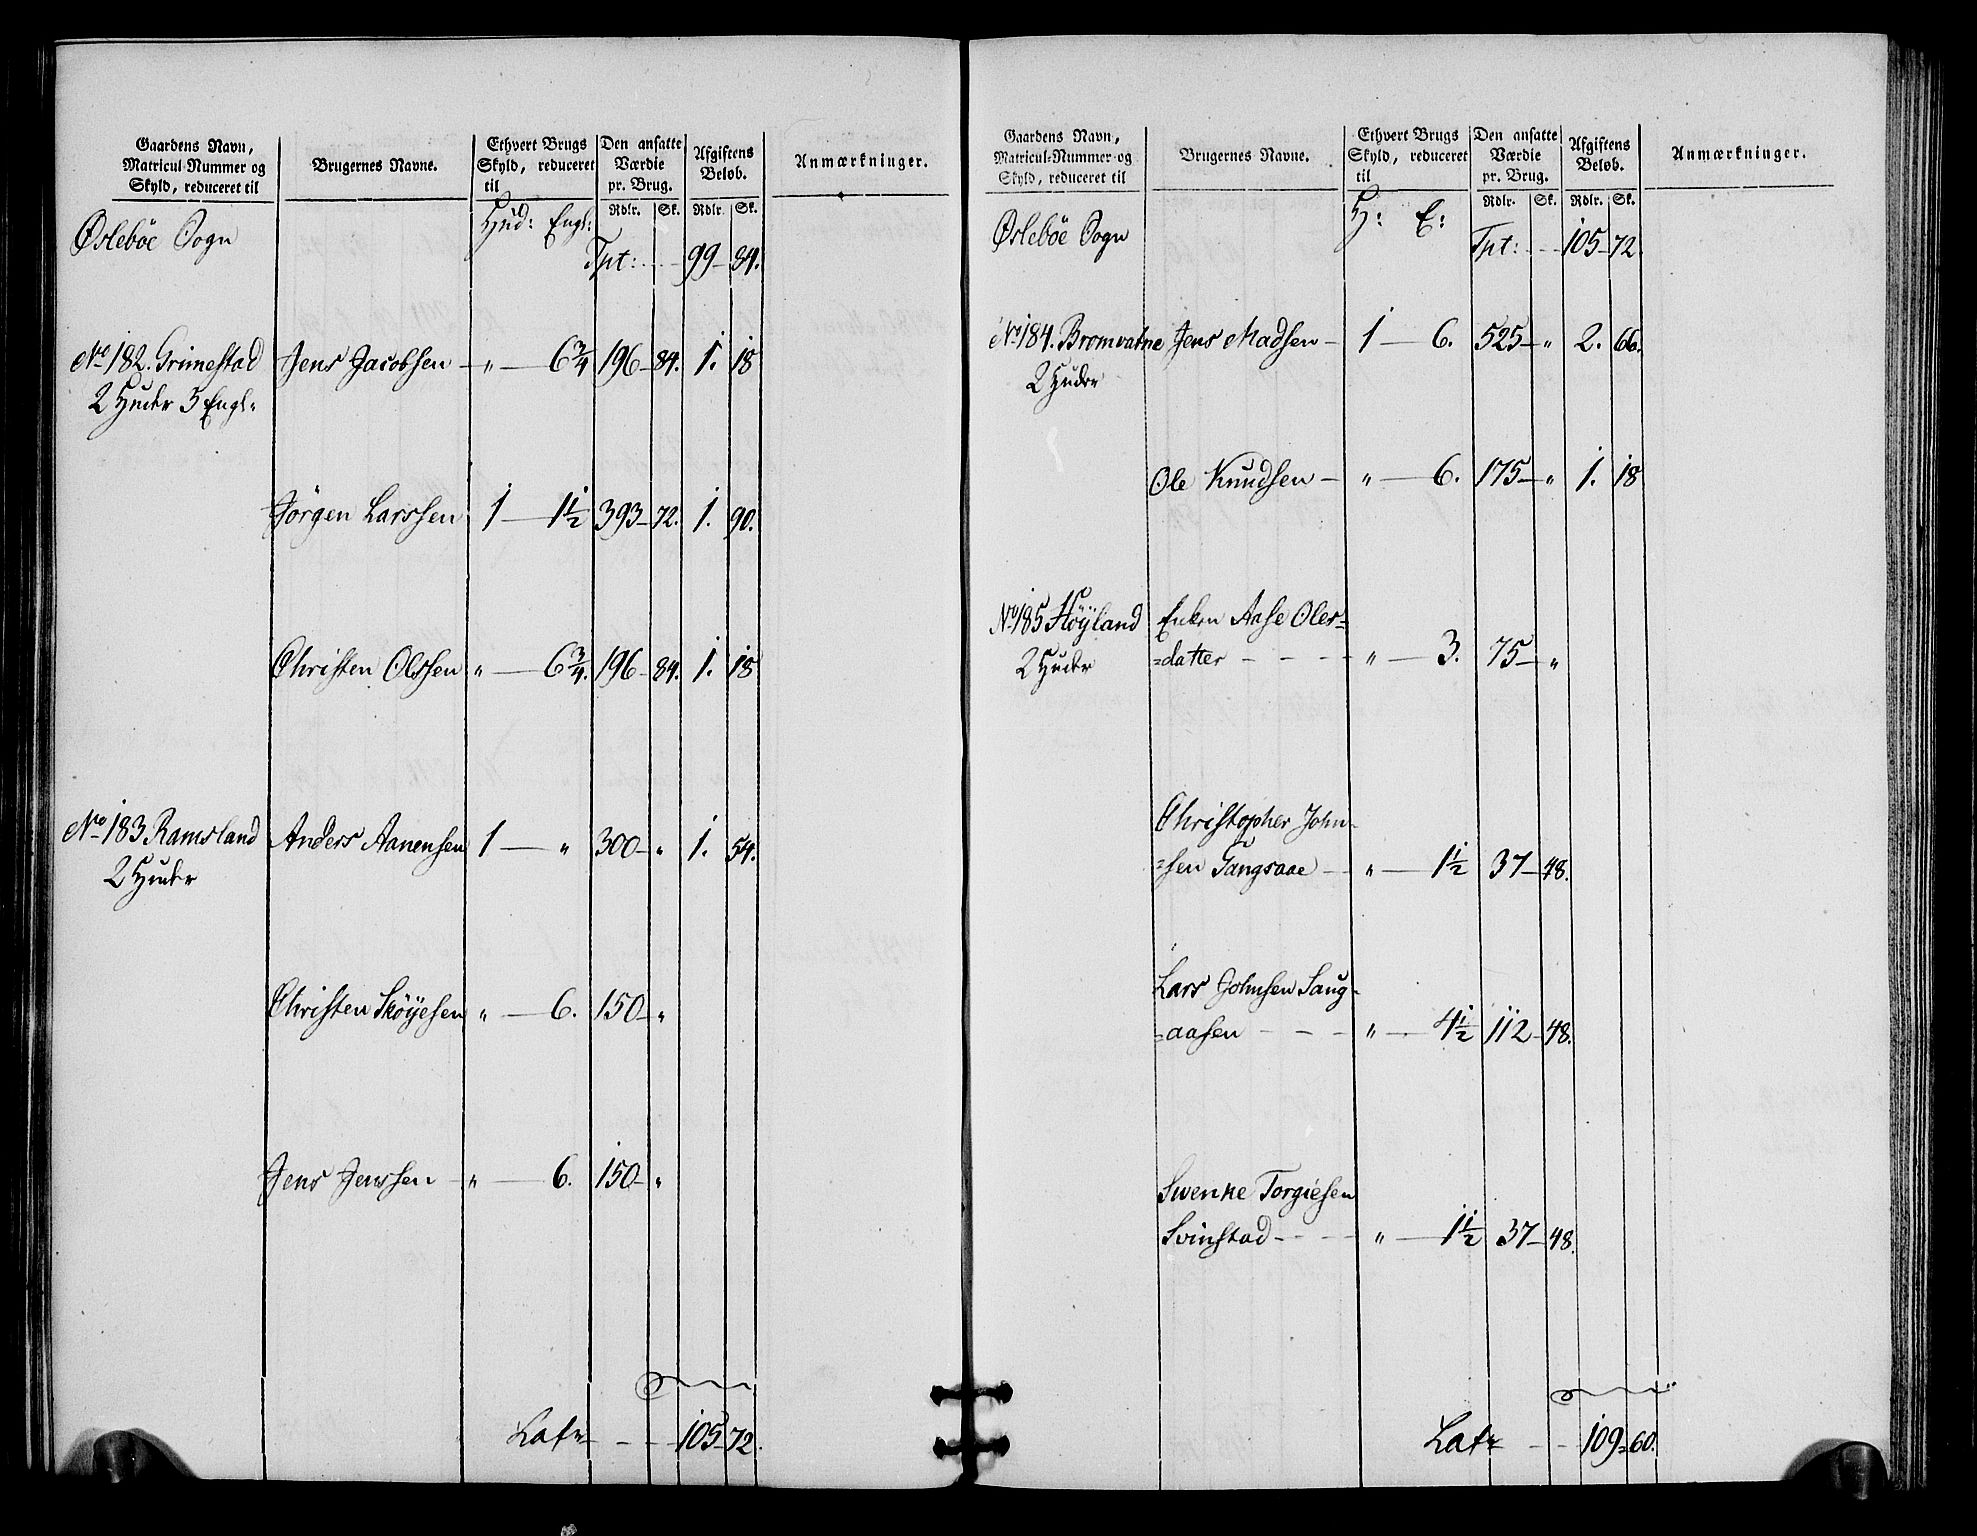 Gaardens Navn, Matricul-Nummer og Skyld, reduceret til | Brugernes Navne. | Ethvert Brugs Skyld, reduceret til | Den ansatte Værdie pr. Brug. | Afgiftens Beløb. | Anmærkninger.
Rdlr. | Sk. | Rdlr. | Sk.
Øslebøe Sogn | Hud: Engl:
Tpt: - - - 99 - 84.
No 182. Grimestad | Jens Jacobsen - | „ - 6 3/4 | 196 - 84. | 1. 18
2 Huder 3 Engl:
Jørgen Larssen | 1 - 1 1/2 | 393 - 72. | 1. 90.
Christen Olssen | „ - 6 3/4. | 196 - 84. | 1. 18
No 183 Ramsland | Anders Aanensen | 1 - „ | 300 - „ | 1. 54.
2 Huder
Christen Skøyesen | „ - 6. | 150 - „
Jens Jenssen - | „ - 6. | 150 - „
Lats - - - 105 - 72.
Gaardens Navn, Matricul-Nummer og Skyld, reduceret til | Brugernes Navne. | Ethvert Brugs Skyld, reduceret til | Den ansatte Værdie pr. Brug. | Afgiftens Beløb. | Anmærkninger.
Rdlr. | Sk. | Rdlr. | Sk.
Øslebøe Sogn | H: E:
Tpt: - - - 105 - 72.
No 184. Bromvatne | Jens Madsen - | 1 - 6. | 525 - „ | 2. 66.
2 Huder
Ole Knudsen - | „ - 6. | 175 - „ | 1. 18
No 185 Høyland | Enken Aase Oles=
2 Huder | =datter - - - - | „ - 3. | 75 - „
Christopher John-
=sen - - | „ - 1 1/2 | 37 - 48.
Lars Johnsen Saug-
=aasen - - - | „ - 4 1/2 | 112 - 48.
Swenke Torgiesen
Svinstad - - - - | „ - 1 1/2 | 37 - 48.
Lats - - - 109 - 60.